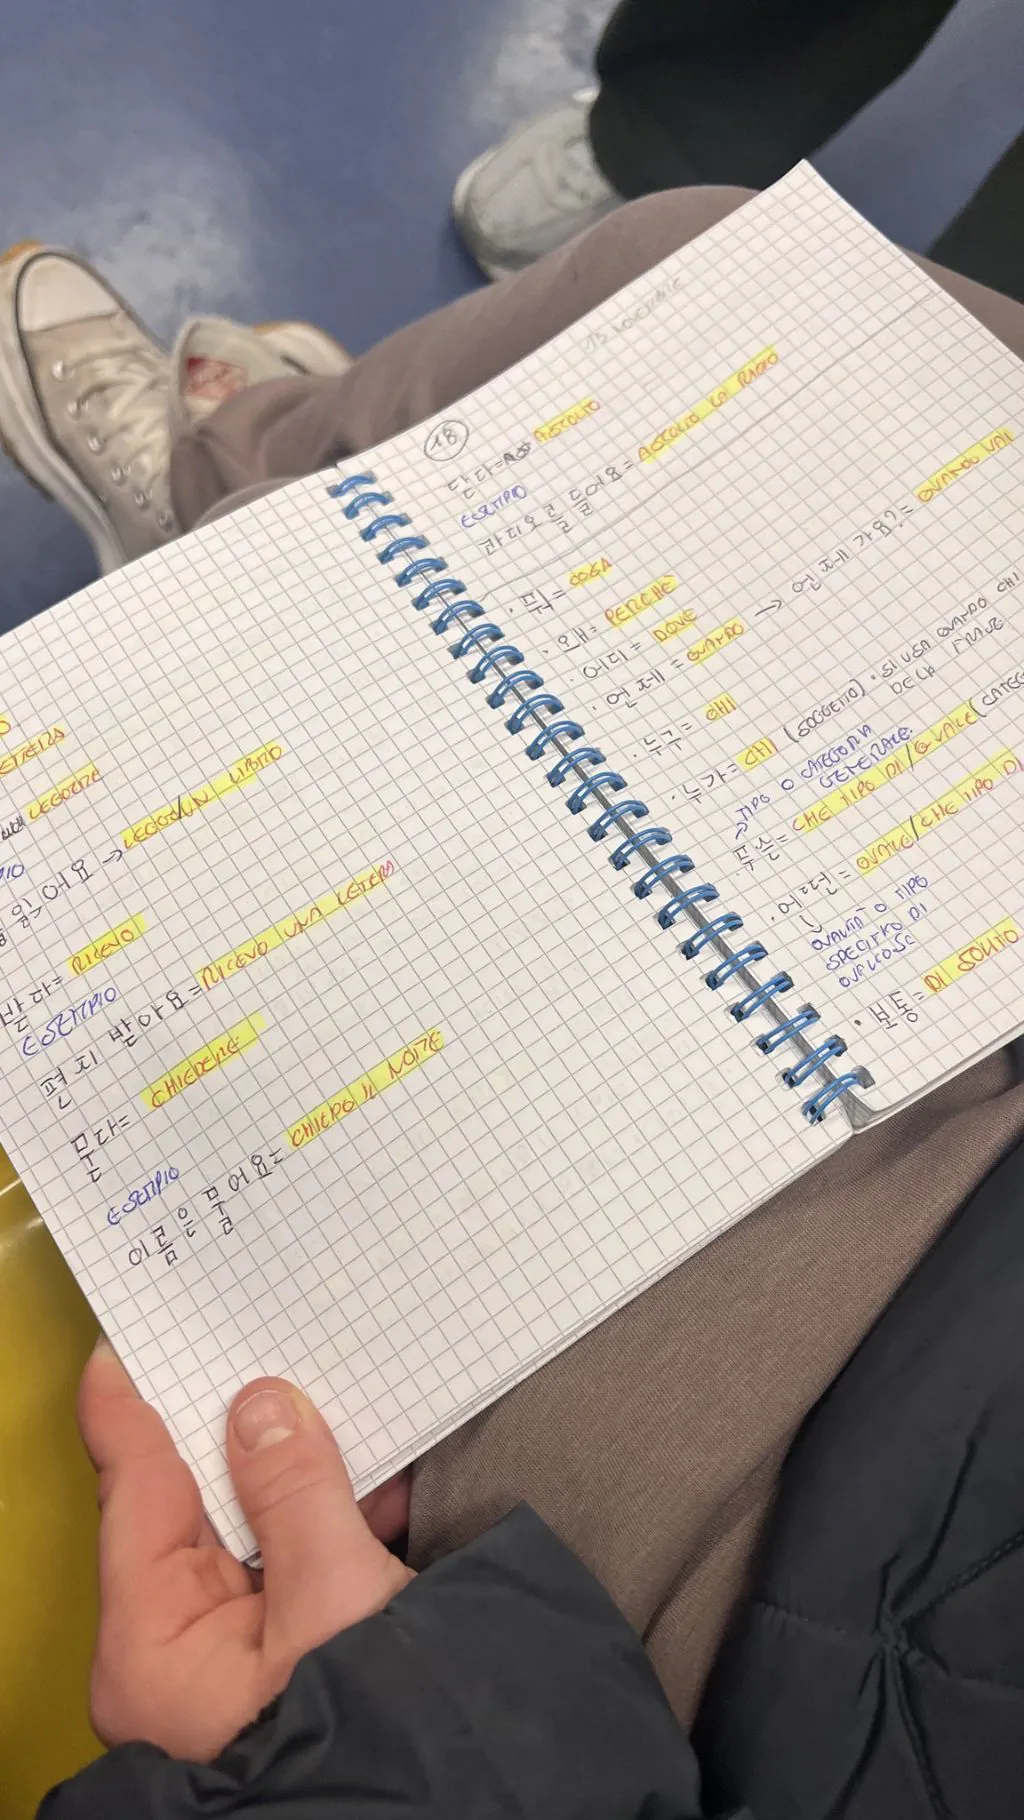 LEGGERE
읽어요 → LEGGO/UN LIBRO
받다= RICEVO
ESEMPIO
편지 받아요= RICEVO UNA LETTERA
묻다= CHIEDERE
ESEMPIO
이름은 물어요= CHIEDO IL NOME
18
ASCOLTO
ESEMPIO
라디오를 들어요= ASCOLTO LA RADIO
· 뭐= COSA
· 왜= PERCHÉ
· 어디= DOVE
· 언제= QUANDO → 언제 가요?= QUANDO VAI
· 누구= CHI
· 누가= CHI (SOGGETTO) · SI USA QUANDO CHI
DELLA FRASE
→ TIPO O CATEGORIA
GENERALE.
· 무슨= CHE TIPO DI/QUALE
· 어떤= QUALE/CHE TIPO DI
↓ QUALITÀ O TIPO
SPECIFICO DI
QUALCOSA
· 보통= DI SOLITO